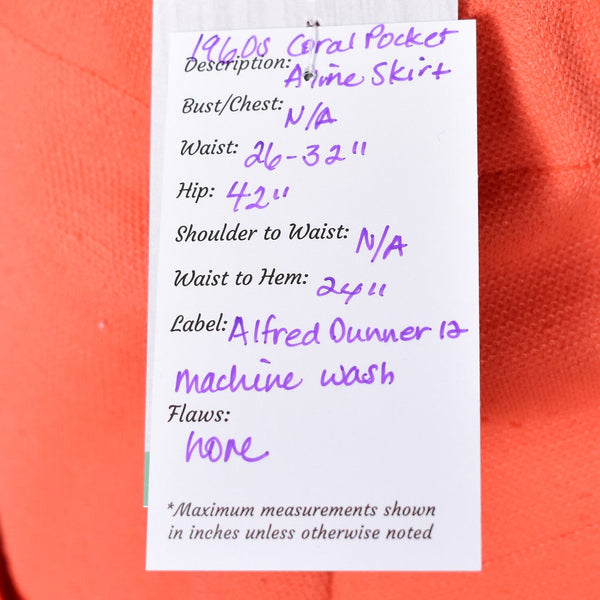 1960s Coral Pocket
Description: Aline Skirt
Bust/Chest: N/A
Waist: 26-32"
Hip: 42"
Shoulder to Waist: N/A
Waist to Hem: 24"
Label: Alfred Dunner 12
machine wash
Flaws:
none
*Maximum measurements shown
in inches unless otherwise noted